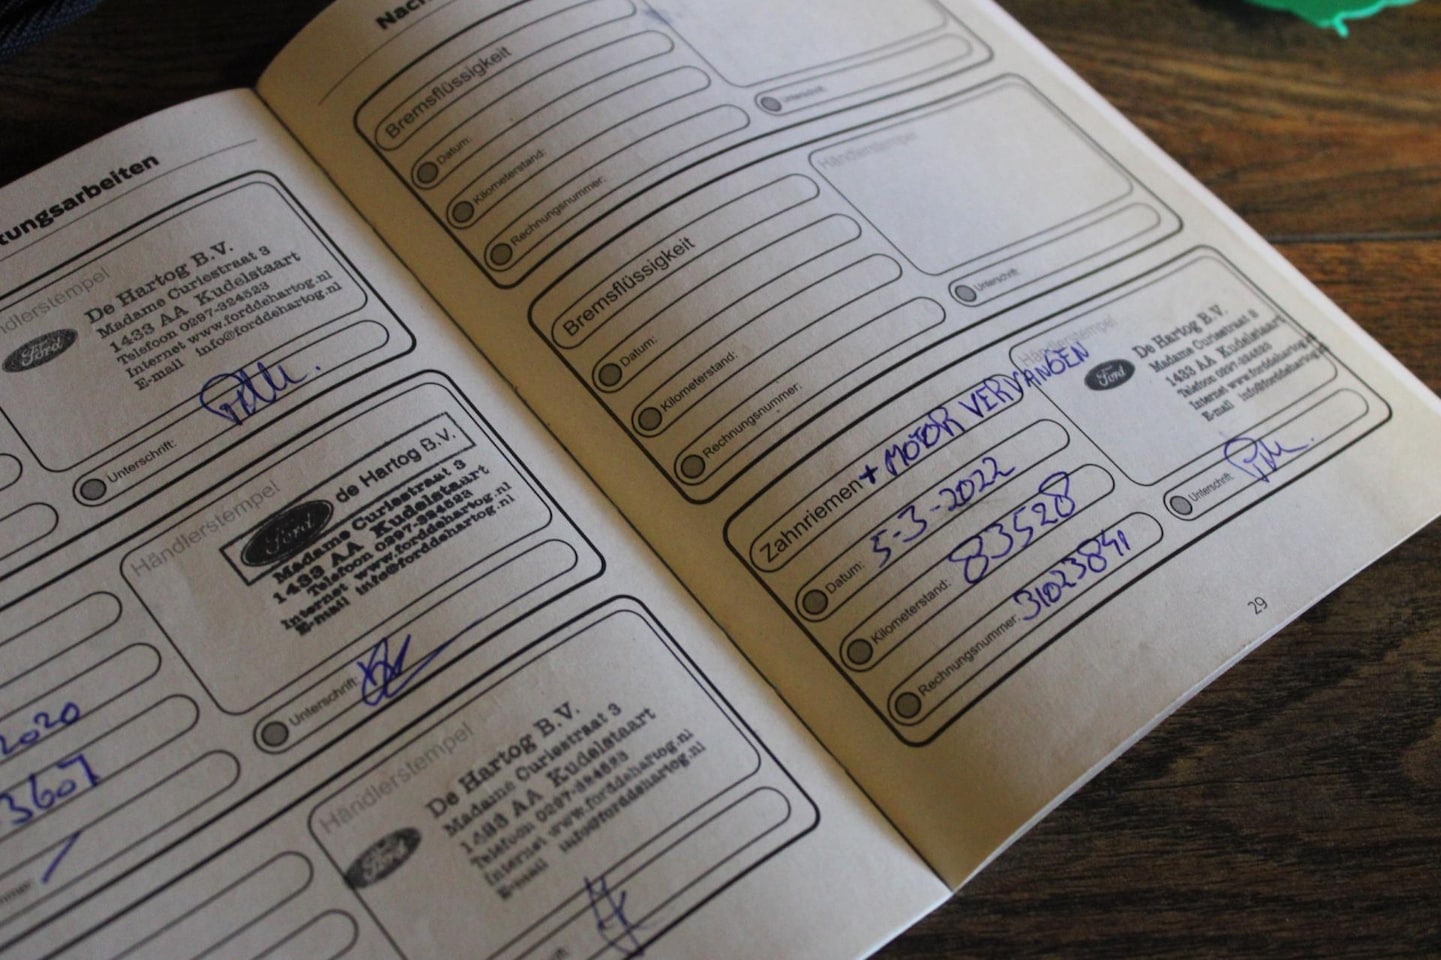 tungsarbeiten
ndlerstempel
Ford
De Hartog B.V.
Madame Curiestraat 3
1433 AA Kudelstaart
Telefoon 0297-324523
Internet www.forddehartog.nl
E-mail info@forddehartog.nl
Unterschrift:
Händlerstempel
Ford de Hartog B.V.
Madame Curiestraat 3
1433 AA Kudelstaart
Telefoon 0297-324523
Internet www.forddehartog.nl
E-mail info@forddehartog.nl
Unterschrift:
2020
3607
Händlerstempel
Ford
De Hartog B.V.
Madame Curiestraat 3
1433 AA Kudelstaart
Telefoon 0297-324523
Internet www.forddehartog.nl
E-mail info@forddehartog.nl
Nach
Bremsflüssigkeit
Datum:
Kilometerstand:
Rechnungsnummer:
Unterschrift:
Bremsflüssigkeit
Händlerstempel
Datum:
Kilometerstand:
Rechnungsnummer:
Unterschrift:
Zahnriemen + MOTOR VERVANGEN
Händlerstempel
Ford
De Hartog B.V.
Madame Curiestraat 3
1433 AA Kudelstaart
Telefoon 0297-324523
Internet www.forddehartog.nl
E-mail info@forddehartog.nl
Datum: 5-3-2022
Kilometerstand: 83528
Rechnungsnummer: 31023841
Unterschrift:
29